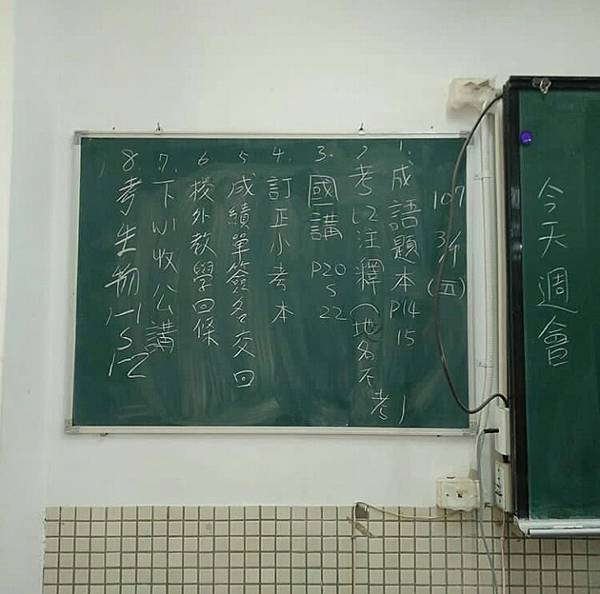 今天週會
107
(五)
1.成語題本P14
15
2考L2注釋(地名不考)
3.國講 P20
S
22
4.訂正小考本
5成績單簽名交回
6校外教學回條
7.下W1收公講
8考生物1-1
S
1-2